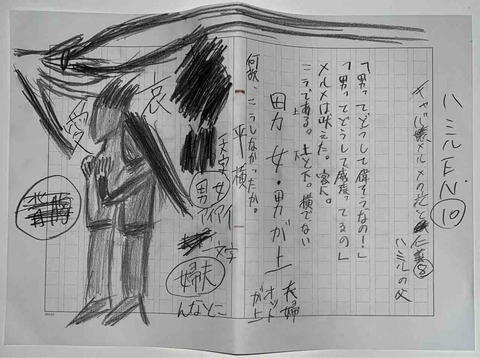 ハミルEN.⑩
メルメの花と仁義⑧
ハミルの父
「男ってどうして偉そうなの！」
「男ってどうして威張ってるの」
メルメは吠えた。
こうである。上と下。横でない
上
下
男 女・男が上
夫婦
オットが上
何故、こうしなかったか。
平横
文字
女男
文字
婦夫
んなとこ
哀
愛